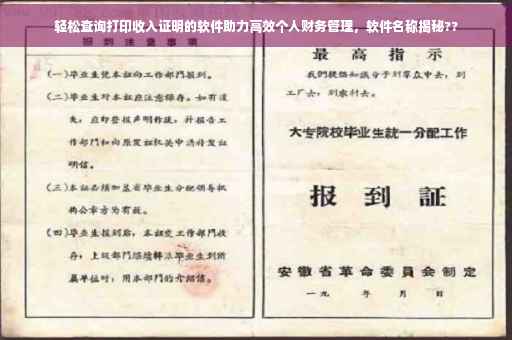 轻松查询打印收入证明的软件助力高效个人财务管理，软件名称揭秘??
报到注意事项
(一)毕业生凭本证向工作部门报到。
(二)毕业生对本证应注意保存。如有遗
失，应即登报声明作废，并报告工
作部门和向原发证机关申请补发证
明信。
(三)本证必须加盖省毕业生分配领导机
构公章方为有效。
(四)毕业生报到后，本证交工作部门收
存；上级部门继续转派毕业生到所
属单位时，用本部门的介绍信。
最高指示
我们提倡知识分子到群众中去，到
工厂去，到农村去。
大专院校毕业生统一分配工作
报到証
安徽省革命委員会制定
一九 年 月 日